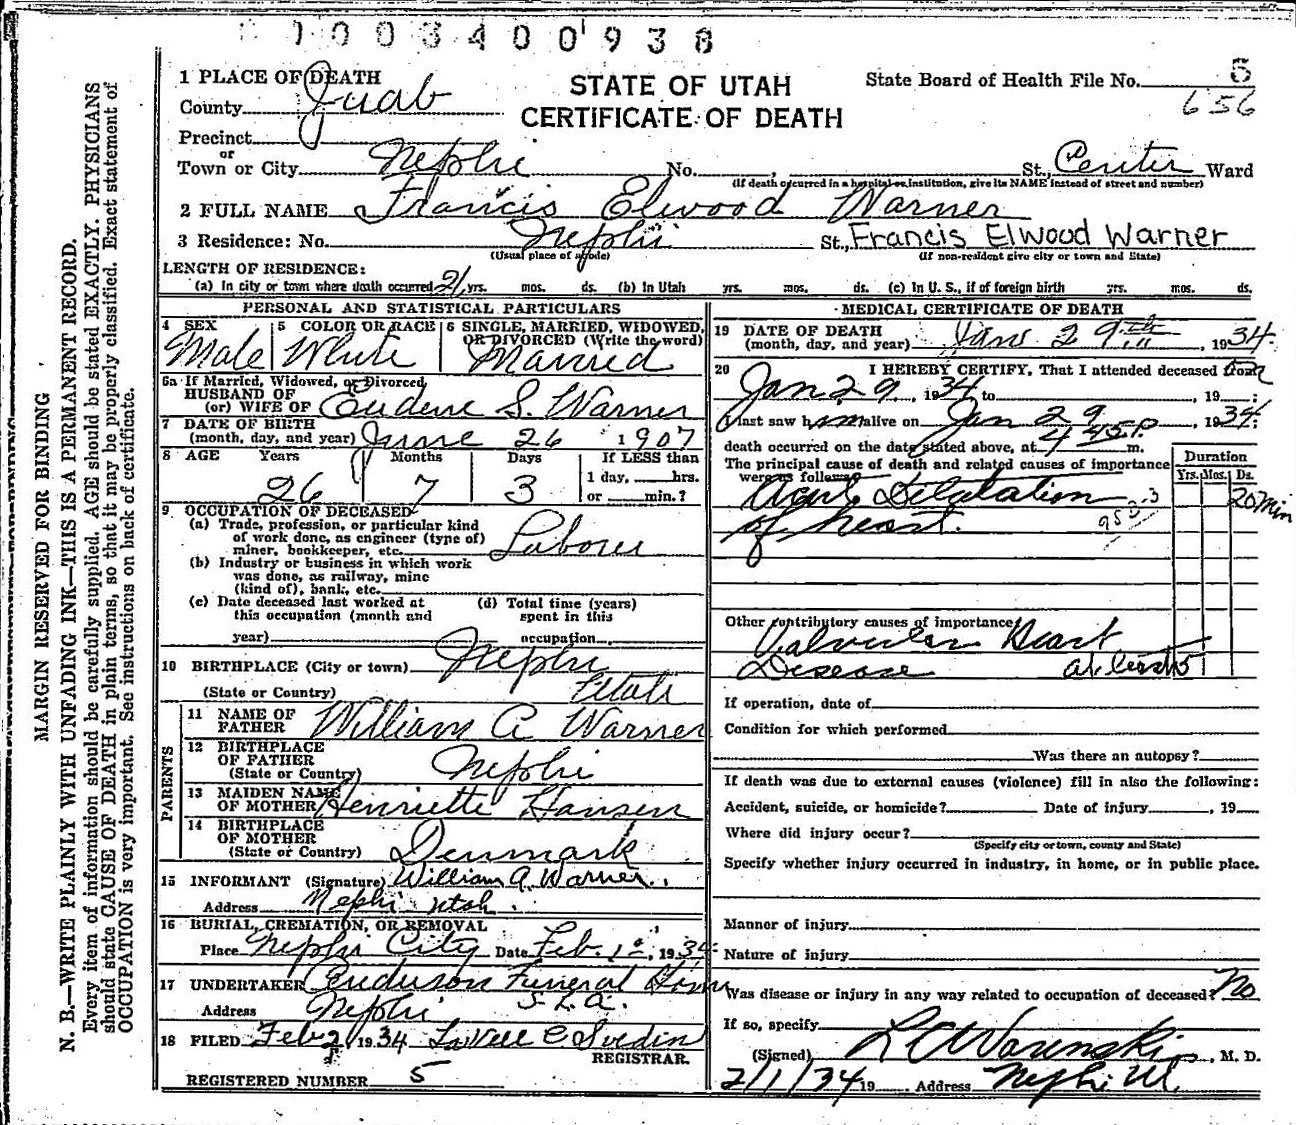 1003400938
1 PLACE OF DEATH
STATE OF UTAH
CERTIFICATE OF DEATH
State Board of Health File No. 5
656
County Juab
Precinct
or
Town or City Nephi No. , St., Center Ward
(If death occurred in a hospital or institution, give its NAME instead of street and number)
2 FULL NAME Francis Elwood Warner
3 Residence: No. Nephi St., Francis Elwood Warner
(Usual place of abode) (If non-resident give city or town and State)
LENGTH OF RESIDENCE:
(a) In city or town where death occurred 21 yrs. mos. ds. (b) In Utah yrs. mos. ds. (c) In U. S., if of foreign birth yrs. mos. ds.
PERSONAL AND STATISTICAL PARTICULARS
4 SEX Male
5 COLOR OR RACE White
6 SINGLE, MARRIED, WIDOWED, OR DIVORCED (Write the word) Married
6a If Married, Widowed, or Divorced
HUSBAND OF
(or) WIFE OF Eudene S. Warner
7 DATE OF BIRTH
(month, day, and year) June 26 1907
8 AGE Years Months Days If LESS than
26 7 3 1 day, hrs.
or min.?
9 OCCUPATION OF DECEASED
(a) Trade, profession, or particular kind
of work done, as engineer (type of)
miner, bookkeeper, etc. Laborer
(b) Industry or business in which work
was done, as railway, mine
(kind of), bank, etc.
(c) Date deceased last worked at
this occupation (month and
year)
(d) Total time (years)
spent in this
occupation
10 BIRTHPLACE (City or town) Nephi
(State or Country) Utah
PARENTS
11 NAME OF
FATHER William A Warner
12 BIRTHPLACE
OF FATHER
(State or Country) Nephi
13 MAIDEN NAME
OF MOTHER Henriette Hansen
14 BIRTHPLACE
OF MOTHER
(State or Country) Denmark
15 INFORMANT (Signature) William A. Warner.
Address Nephi Utah.
16 BURIAL, CREMATION, OR REMOVAL
Place Nephi City Date Feb. 1st, 1934
17 UNDERTAKER Anderson Funeral Home
Address Nephi
18 FILED Feb 2 1934 LaVell C Svedin
REGISTRAR.
REGISTERED NUMBER 5
MEDICAL CERTIFICATE OF DEATH
19 DATE OF DEATH
(month, day, and year) Jan 29th, 1934.
20 I HEREBY CERTIFY, That I attended deceased from
Jan 29, 1934 to , 19 ;
I last saw him alive on Jan 29, 1934;
death occurred on the date stated above, at 4 45 P. m.
The principal cause of death and related causes of importance
were as follows:
Duration
Yrs. Mos. Ds.
Acute Dilatation 20 Min
of heart.
Other contributory causes of importance:
Valvular Heart
Disease at least 5
If operation, date of
Condition for which performed
Was there an autopsy?
If death was due to external causes (violence) fill in also the following:
Accident, suicide, or homicide? Date of injury , 19
Where did injury occur?
(Specify city or town, county and State)
Specify whether injury occurred in industry, in home, or in public place.
Manner of injury
Nature of injury
Was disease or injury in any way related to occupation of deceased? No
If so, specify
(Signed) , M. D.
2/1/34 19 . Address Nephi Ut.
MARGIN RESERVED FOR BINDING
N. B.—WRITE PLAINLY WITH UNFADING INK—THIS IS A PERMANENT RECORD.
Every item of information should be carefully supplied. AGE should be stated EXACTLY. PHYSICIANS
should state CAUSE OF DEATH in plain terms, so that it may be properly classified. Exact statement of
OCCUPATION is very important. See instructions on back of certificate.